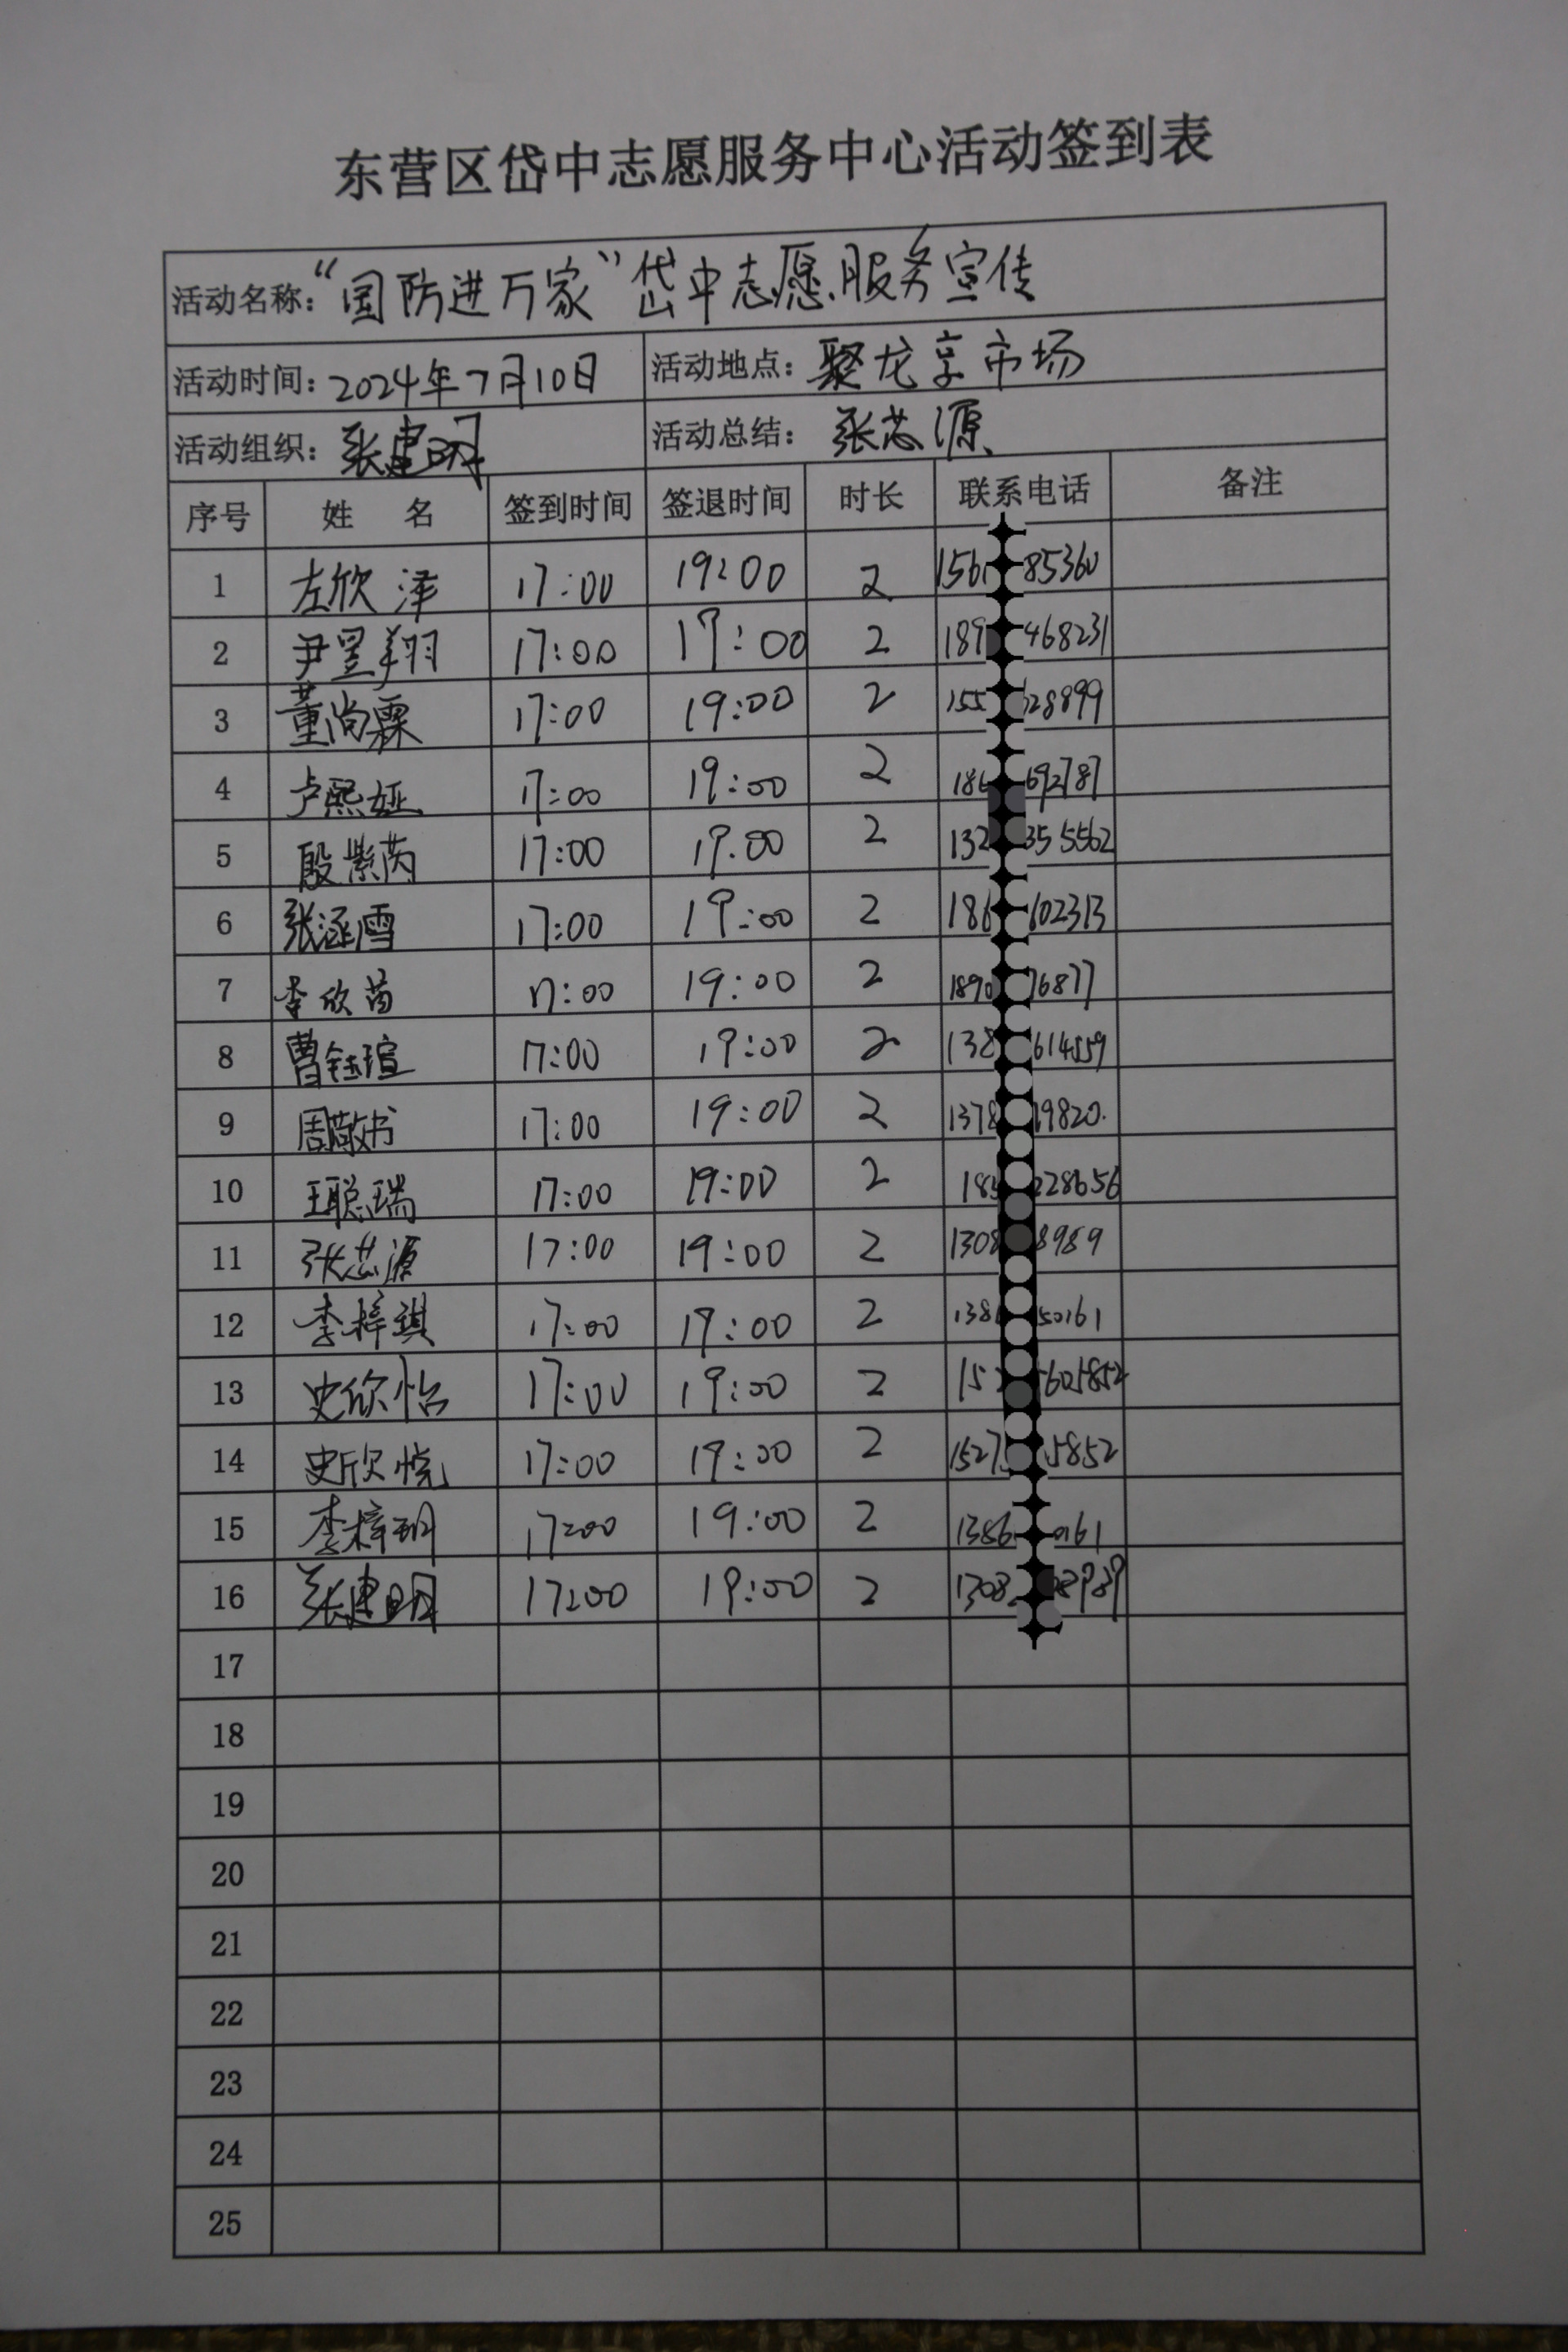 东营区岱中志愿服务中心活动签到表
活动名称：“国防进万家”岱中志愿服务宣传
活动时间：2024年7月10日 活动地点：聚龙享市场
活动组织：张建明 活动总结：张芯源
序号 姓 名 签到时间 签退时间 时长 联系电话 备注
1 左欣泽 17:00 19:00 2 156 85360
2 尹昱翔 17:00 19:00 2 189 468231
3 董尚霖 17:00 19:00 2 155 28899
4 卢熙娅 17:00 19:00 2 186 692787
5 殷紫芮 17:00 19.00 2 132 355562
6 张涵雪 17:00 19:00 2 186 602313
7 李欣茵 17:00 19:00 2 1890 76877
8 曹钰瑄 17:00 19:00 2 138 614559
9 周敬书 17:00 19:00 2 1378 19820.
10 王聪瑞 17:00 19:00 2 185 228656
11 张芯源 17:00 19:00 2 1308 8989
12 李梓琪 17:00 19:00 2 138 50161
13 史欣怡 17:00 19:00 2 152 605852
14 史欣悦 17:00 19:00 2 1527 5852
15 李梓玥 17:00 19:00 2 1386 0161
16 张建明 17:00 19:00 2 1308 8989
17
18
19
20
21
22
23
24
25